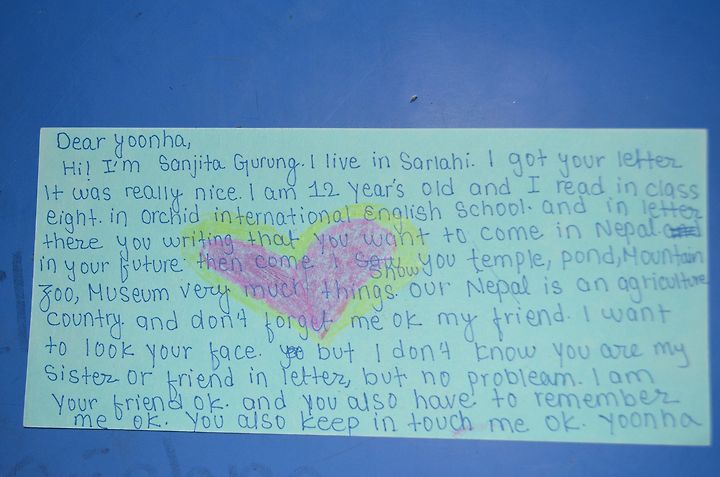 Dear yoonha,
Hi! I'm Sanjita Gurung. I live in Sarlahi. I got your letter
It was really nice. I am 12 year's old and I read in class
eight. in orchid international English School. and in letter
there you writing that you want to come in Nepal
in your future then come I show you temple, pond, Mountain
zoo, Museum very much things. our Nepal is an agriculture
country. and don't forget me ok my friend. I want
to look your face. but I don't know you are my
sister or friend in letter, but no probleam. I am
your friend ok. and you also have to remember
me ok. you also keep in touch me ok. yoonha